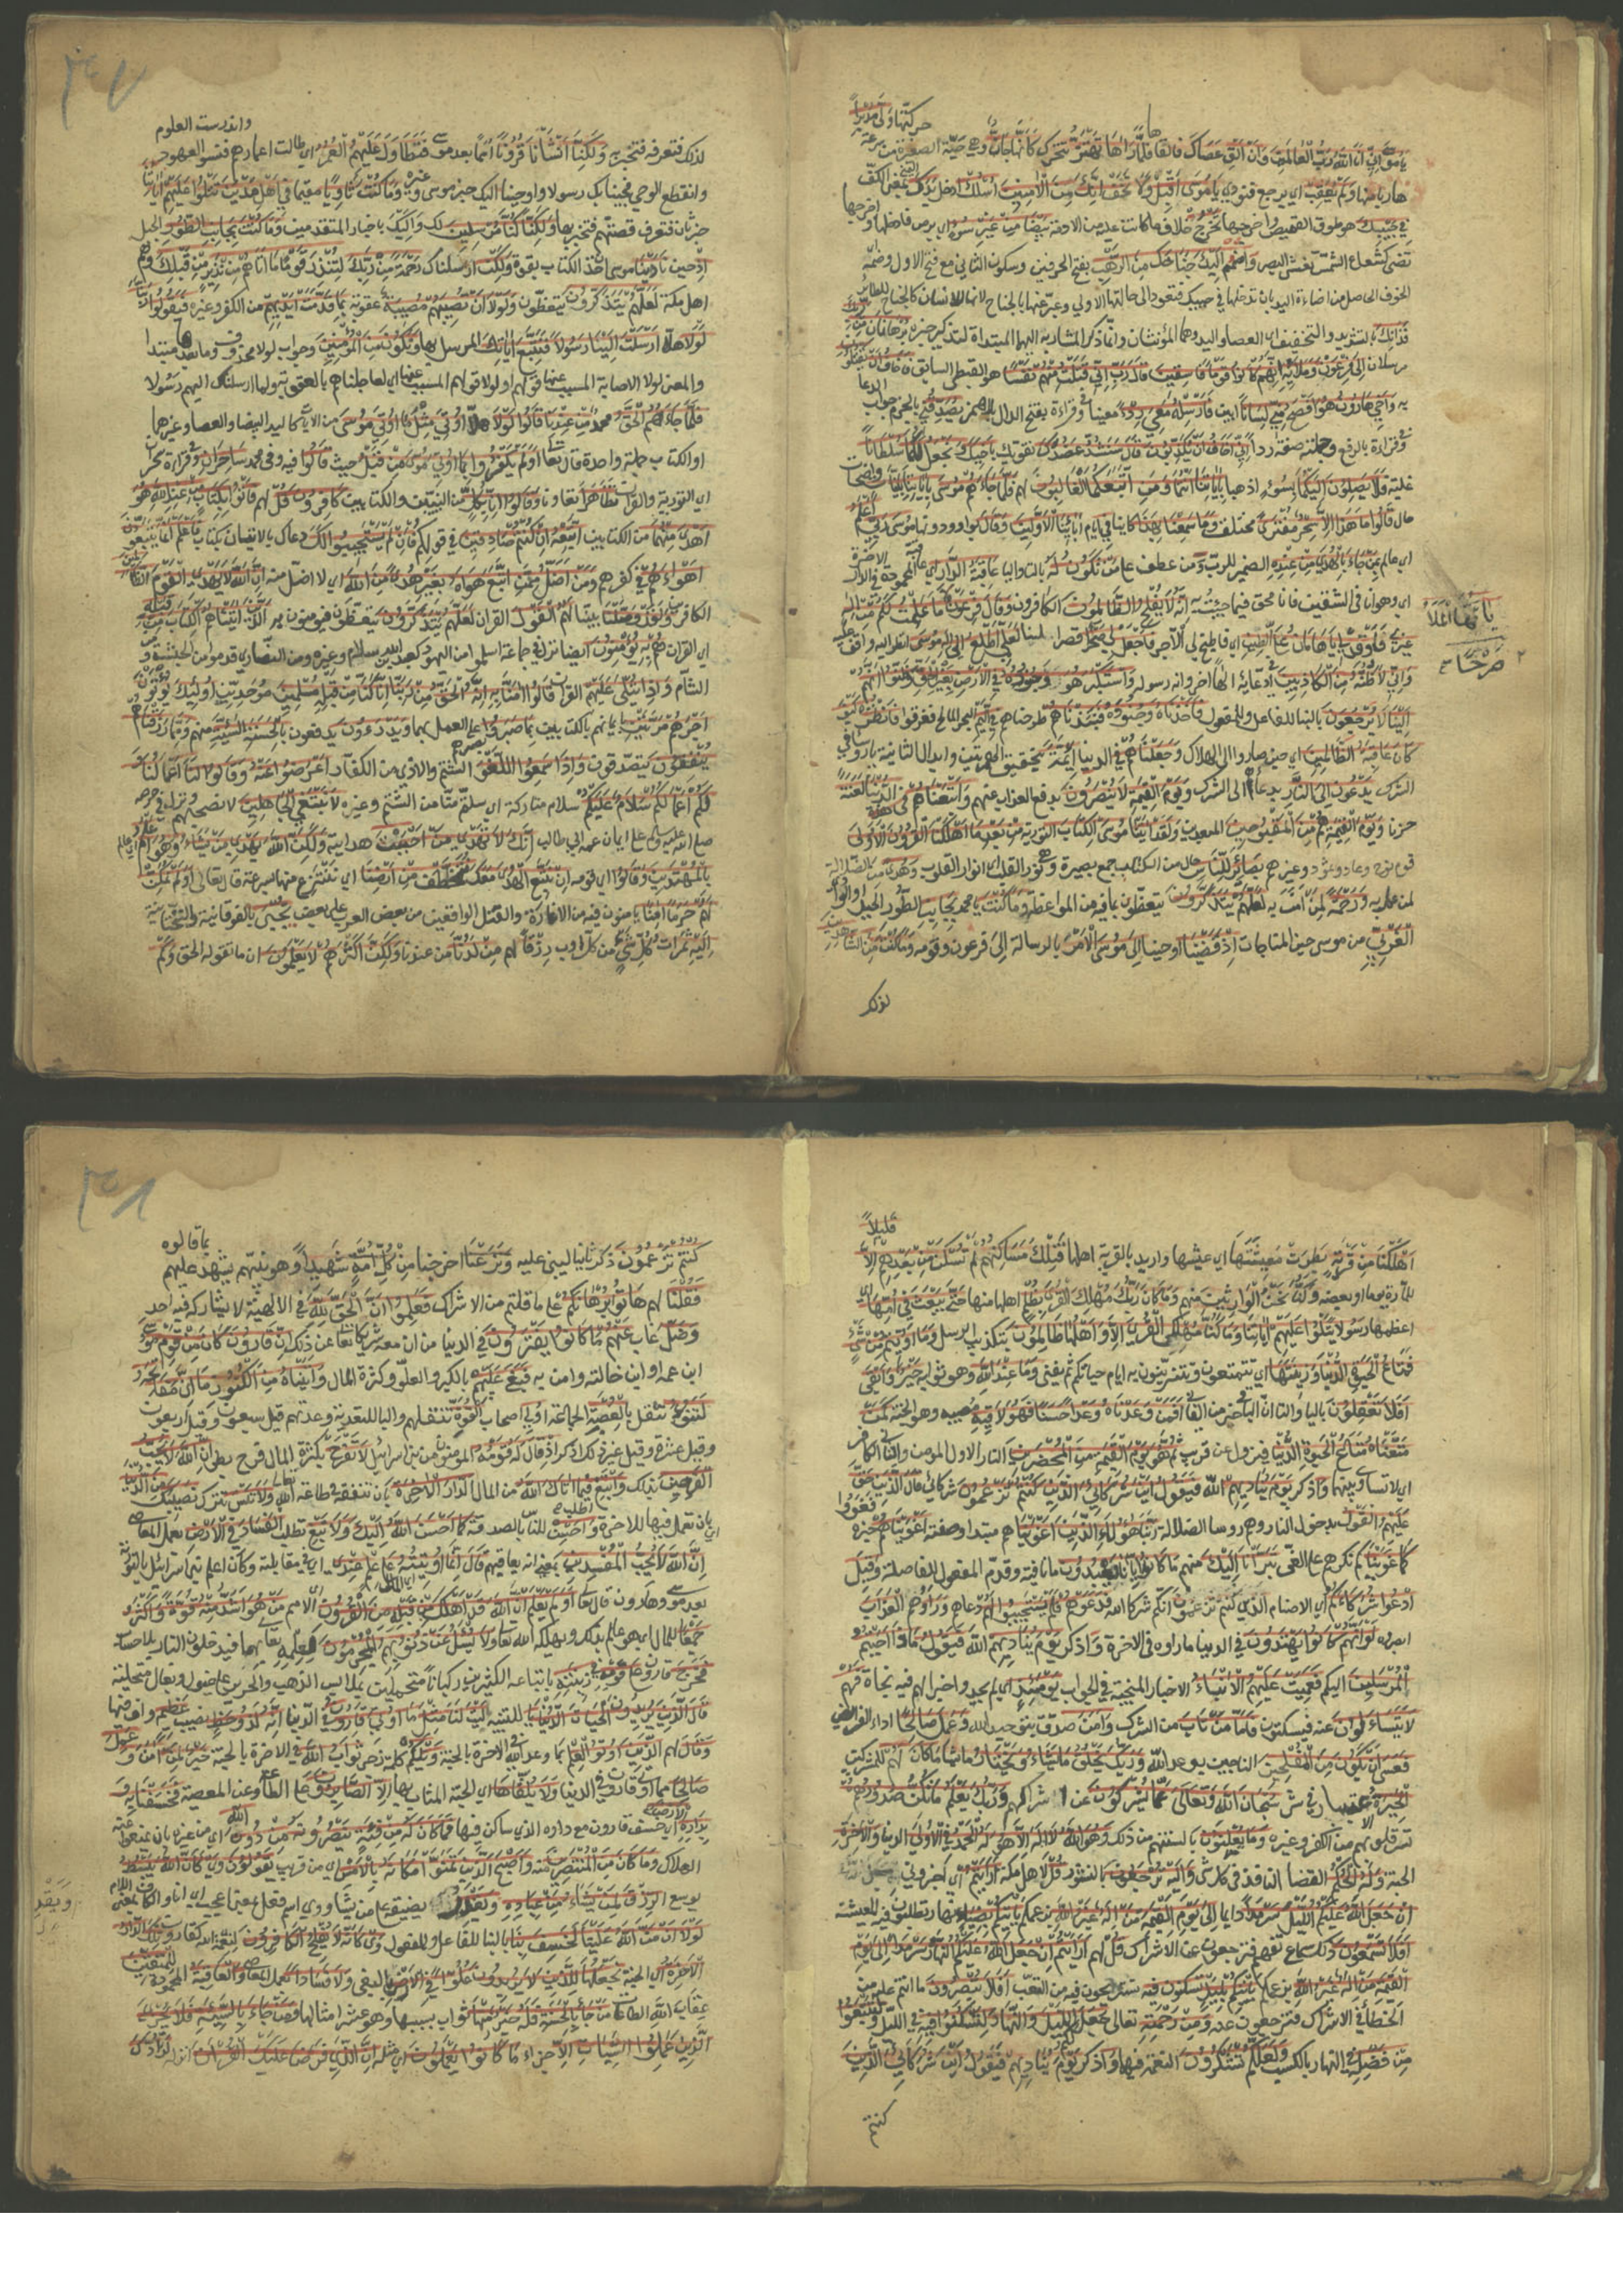 حركتها ولى مدبرا
يا موسى اني انا الله رب العالمين وان الق عصاك فالقاها فلما رآها تهتز تتحرك كانها جان وهي حية الصغيرة من سرعة
هاربا منها ولم يعقب اي يرجع فنودي يا موسى اقبل ولا تخف انك من الامنين اسلك ادخل يدك اليمنى بمعنى الكف
في جيبك هو طوق القميص واخرجها تخرج خلاف ما كانت عليه من الادمة بيضاء من غير سوء اي برص فادخلها واخرجها
تضئ كشعاع الشمس تغشى البصر واضمم اليك جناحك من الرهب بفتح الحرفين وسكون الثاني مع فتح الاول وضمه
الخوف الحاصل من اضاءة اليد بان تدخلها في جيبك فتعود الى حالتها الاولى وعبر عنها بالجناح لانها للانسان كالجناح للطائر
فذانك بالتشديد والتخفيف اي العصا واليد وهما المؤنثان وانما ذكر المشار به اليهما المبتدا لتذكير خبره برهانان من ربك
مرسلان الى فرعون وملائه انهم كانوا قوما فاسقين قال رب اني قتلت منهم نفسا هو القبطي السابق فاخاف ان يقتلون
به واخي هارون هو افصح مني لسانا ابين فارسله معي ردءا معينا وفي قراءة بفتح الدال بلا همز يصدقني بالجزم جواب الدعا
وفي قراءة بالرفع وجملته صفة ردءا اني اخاف ان يكذبون قال سنشد عضدك نقويك باخيك ونجعل لكما سلطانا
غلبة فلا يصلون اليكما بسوء اذهبا باياتنا انتما ومن اتبعكما الغالبون لهم فلما جاءهم موسى باياتنا بينات واضحات
حال قالوا ما هذا الا سحر مفترى مختلف وما سمعنا بهذا كائنا في ايام ابائنا الاولين وقال بواو ودونها موسى ربي اعلم
اي عالم بمن جاء بالهدى من عنده الضمير للرب ومن عطف على من تكون له بالتا واليا عاقبة الدار اي العاقبة المحمودة في الدار الاخرة
اي وهو انا في الشقين فانا محق فيما جئت به انه لا يفلح الظالمون الكافرون وقال فرعون يا ايها الملأ ما علمت لكم من اله
غيري فاوقد لي يا هامان على الطين اي فاطبخ لي الاجر فاجعل لي صرحا قصرا لعلي اطلع الى اله موسى انظر اليه واقف عليه
واني لاظنه من الكاذبين في ادعائه الها آخر وانه رسوله واستكبر هو وجنوده في الارض بغير الحق وظنوا انهم
الينا لا يرجعون بالبنا للفاعل وللمفعول فاخذناه وجنوده فنبذناهم طرحناهم في اليم البحر المالح فغرقوا فانظر كيف
كان عاقبة الظالمين اي حين صاروا الى الهلاك وجعلناهم في الدنيا ائمة بتحقيق الهمزتين وابدال الثانية يا رؤسا في
الشرك يدعون الى النار بدعائهم الى الشرك ويوم القيمة لا ينصرون بدفع العذاب عنهم واتبعناهم في هذه الدنيا لعنة
خزيا ويوم القيمة هم من المقبوحين المبعدين ولقد اتينا موسى الكتاب التورية من بعد ما اهلكنا القرون الاولى
قوم نوح وعاد وثمود وغيرهم بصائر للناس حال من الكتاب جمع بصيرة وهي نور القلب اي انوار القلوب وهدى من الضلالة
لمن عمل به ورحمة لمن آمن به لعلهم يتذكرون يتعظون بما فيه من المواعظ وما كنت يا محمد بجانب الطور الجبل او الواد
الغربي من موسى حين المناجات اذ قضينا اوحينا الى موسى الامر بالرسالة الى فرعون وقومه وما كنت من الشاهدين
لذلك
واندرست العلوم
لذلك فتعرفه فتخبر به ولكنا انشأنا قرونا امما بعد موسى فتطاول عليهم العمر اي طالت اعمارهم فنسوا العهود
وانقطع الوحي فجئنا بك رسولا واوحينا اليك خبر موسى وغيره وما كنت ثاويا مقيما في اهل مدين تتلوا عليهم اياتنا
خبر ثان فتعرف قصتهم فتخبر بها ولكنا كنا مرسلين لك واليك باخبار المتقدمين وما كنت بجانب الطور الجبل
اذ حين نادينا موسى ان خذ الكتاب بقوة ولكن ارسلناك رحمة من ربك لتنذر قوما ما اتاهم من نذير من قبلك وهم
اهل مكة لعلهم يتذكرون يتعظون ولولا ان تصيبهم مصيبة عقوبة بما قدمت ايديهم من الكفر وغيره فيقولوا ربنا
لولا هلا ارسلت الينا رسولا فنتبع اياتك المرسل بها ونكون من المؤمنين وجواب لولا محذوف وما بعدها مبتدا
والمعنى لولا الاصابة المسبب عنها قولهم او لولا قولهم المسبب عنها اي لعاجلناهم بالعقوبة ولما ارسلناك اليهم رسولا
فلما جاءهم الحق محمد من عندنا قالوا لولا هلا اوتي مثل ما اوتي موسى من الآيات كاليد البيضا والعصا وغيرهما
او الكتاب جملة واحدة قال تعالى اولم يكفروا بما اوتي موسى من قبل حيث قالوا فيه وفي محمد ساحران وفي قراءة سحران
اي التورية والقران تظاهرا تعاونا وقالوا انا بكل من النبيين والكتابين كافرون قل لهم فاتوا بكتاب من عند الله هو
اهدى منهما من الكتابين اتبعه ان كنتم صادقين في قولكم فان لم يستجيبوا لك دعاك بالاتيان بكتاب فاعلم انما يتبعون
اهواءهم في كفرهم ومن اضل ممن اتبع هواه بغير هدى من الله اي لا اضل منه ان الله لا يهدي القوم الظالمين
الكافرين ولقد وصلنا بينا لهم القول القران لعلهم يتذكرون يتعظون فيؤمنون به الذين اتيناهم الكتاب من قبله
اي القران هم به يؤمنون ايضا نزل في جماعة اسلموا من اليهود كعبد الله بن سلام وغيره ومن النصارى قدموا من الحبشة و
الشام واذا يتلى عليهم القران قالوا امنا به انه الحق من ربنا انا كنا من قبله مسلمين موحدين اولئك يؤتون
اجرهم مرتين بايمانهم بالكتابين بما صبروا على العمل بهما ويدرءون يدفعون بالحسنة السيئة منهم ومما رزقناهم
ينفقون يتصدقون واذا سمعوا اللغو الشتم والاذى من الكفار اعرضوا عنه وقالوا لنا اعمالنا و
لكم اعمالكم سلام عليكم سلام متاركة اي سلمتم منا من الشتم وغيره لا نبتغي الجاهلين لا نصحبهم ونزل في حرصه
صلى الله عليه وسلم على ايمان عمه ابي طالب انك لا تهدي من احببت هدايته ولكن الله يهدي من يشاء وهو اعلم اي عالم
بالمهتدين وقالوا اي قومه ان نتبع الهدى معك نتخطف من ارضنا اي ننتزع منها بسرعة قال تعالى اولم نمكن
لهم حرما امنا يامنون فيه من الاغارة والقتل الواقعين من بعض العرب على بعض يجبى بالفوقانية والتحتانية
اليه ثمرات كل شئ من كل اوب رزقا لهم من لدنا من عندنا ولكن اكثرهم لا يعلمون ان ما نقوله الحق وكم
قليلا
اهلكنا من قرية بطرت معيشتها اي عيشها واريد بالقرية اهلها فتلك مساكنهم لم تسكن من بعدهم الا
للمارة يوما او بعضه وكنا نحن الوارثين منهم وما كان ربك مهلك القرى بظلم اهلها منها حتى يبعث في امها اي
اعظمها رسولا يتلوا عليهم اياتنا وما كنا مهلكي القرى الا واهلها ظالمون بتكذيب الرسل وما اوتيتم من شئ
فمتاع الحيوة الدنيا وزينتها اي تتمتعون وتتزينون به ايام حياتكم ثم يفنى وما عند الله وهو ثوابه خير وابقى
افلا تعقلون باليا والتا ان الباقي خير من الفاني افمن وعدناه وعدا حسنا فهو لاقيه مصيبه وهو الجنة كمن
متعناه متاع الحيوة الدنيا فيزول عن قريب ثم هو يوم القيمة من المحضرين النار الاول المؤمن والثاني الكافر
اي لا تساوي بينهما واذكر يوم يناديهم الله فيقول اين شركائي الذين كنتم تزعمون شركائي قال الذين حق
عليهم القول بدخول النار وهم رؤسا الضلالة ربنا هؤلاء الذين اغوينا هم مبتدا وصفة اغويناهم خبره فغووا
كما غوينا لم نكرههم على الغي تبرأنا اليك منهم ما كانوا ايانا يعبدون ما نافية وقدم المفعول للفاصلة وقيل
ادعوا شركاءكم اي الاصنام الذين كنتم تزعمون انهم شركاء الله فدعوهم فلم يستجيبوا لهم دعاهم ورأوا هم العذاب
ابصروه لو انهم كانوا يهتدون في الدنيا ما راوه في الاخرة واذكر يوم يناديهم الله فيقول ماذا اجبتم
المرسلين اليكم فعميت عليهم الانباء الاخبار المنجية في الجواب يومئذ اي لم يجدوا خبرا لهم فيه نجاة فهم
لا يتساءلون عنه فيسكتون فاما من تاب من الشرك وامن صدق بتوحيد الله وعمل صالحا اداء الفرائض
فعسى ان يكون من المفلحين الناجين بوعد الله وربك يخلق ما يشاء ويختار ما يشا ما كان لهم للمشركين
الخيرة الاختيار في شئ سبحان الله وتعالى عما يشركون عن اشراكهم وربك يعلم ما تكن صدورهم
تسر قلوبهم من الكفر وغيره وما يعلنون بالسنتهم من ذلك وهو الله لا اله الا هو له الحمد في الاولى الدنيا والاخرة
الجنة وله الحكم القضا النافذ في كل شئ واليه ترجعون بالنشور قل لاهل مكة ارأيتم اي اخبروني
ان جعل الله عليكم الليل سرمدا دايما الى يوم القيمة من اله غير الله بزعمكم ياتيكم بضياء نهار تطلبون فيه المعيشة
افلا تسمعون ذلك سماع تفهم فترجعون عن الاشراك قل لهم ارأيتم ان جعل الله عليكم النهار سرمدا الى يوم
القيمة من اله غير الله بزعمكم ياتيكم بليل تسكنون فيه تستريحون فيه من التعب افلا تبصرون ما انتم عليه من
الخطأ في الاشراك فترجعون عنه ومن رحمته تعالى جعل لكم الليل والنهار لتسكنوا فيه في الليل ولتبتغوا
من فضله في النهار بالكسب ولعلكم تشكرون النعمة فيهما واذكر يوم يناديهم فيقول اين شركائي الذين
كنتم
بما قالوه
كنتم تزعمون ذكر ثانيا ليبنى عليه ونزعنا اخرجنا من كل امة شهيدا وهو نبيهم يشهد عليهم
فقلنا لهم هاتوا برهانكم على ما قلتم من الاشراك فعلموا ان الحق لله في الالهية لا يشاركه فيه احد
وضل غاب عنهم ما كانوا يفترون في الدنيا من ان معه شريكا تعالى عن ذلك ان قارون كان من قوم موسى
ابن عمه وابن خالته وامن به فبغى عليهم بالكبر والعلو وكثرة المال واتيناه من الكنوز ما ان مفاتحه
لتنوء تثقل بالعصبة الجماعة اولي اصحاب القوة تثقلهم والبا للتعدية وعدتهم قيل سبعون وقيل اربعون
وقيل عشرة وقيل غير ذلك اذكر اذ قال له قومه المؤمنون من بني اسرائيل لا تفرح بكثرة المال فرح بطر ان الله لا يحب
الفرحين بذلك وابتغ فيما اتاك الله من المال الدار الاخرة بان تنفقه في طاعة الله تعالى ولا تنس تترك نصيبك من الدنيا
اي بان تعمل فيها للاخرة واحسن للناس بالصدقة كما احسن الله اليك ولا تبغ تطلب الفساد في الارض بعمل المعاصي
ان الله لا يحب المفسدين بمعنى انه يعاقبهم قال انما اوتيته على علم عندي اي في مقابلته وكان اعلم بني اسرائيل بالتورية
بعد موسى وهارون قال تعالى اولم يعلم ان الله قد اهلك من قبله من القرون الامم من هو اشد منه قوة واكثر
جمعا للمال اي هو عالم بذلك ويهلكه الله تعالى ولا يسئل عن ذنوبهم المجرمون لعلمه تعالى بها فيدخلون النار بلا حساب
فخرج قارون على قومه في زينته باتباعه الكثيرين ركبانا متحلين بملابس الذهب والحرير على خيول وبغال متحلية
قال الذين يريدون الحياة الدنيا يا للتنبيه ليت لنا مثل ما اوتي قارون في الدنيا انه لذو حظ نصيب عظيم واف فيها
وقال لهم الذين اوتوا العلم بما وعد الله في الاخرة بالجنة ويلكم كلمة زجر ثواب الله في الاخرة بالجنة خير لمن امن وعمل
صالحا مما اوتي قارون في الدنيا ولا يلقاها اي الجنة المثاب بها الا الصابرون على الطاعة وعن المعصية فخسفنا به و
بداره الارض اي خسف قارون مع داره الذي ساكن فيها فما كان له من فئة ينصرونه من دون الله اي من غيره بان يمنعوا عنه
الهلاك وما كان من المنتصرين منه واصبح الذين تمنوا مكانه بالامس اي من قريب يقولون ويكان الله يبسط
يوسع الرزق لمن يشاء من عباده ويقدر يضيقه على من يشا ووي اسم فعل بمعنى اعجب اي انا والكاف بمعنى اللام
لولا ان من الله علينا لخسف بنا بالبنا للفاعل وللمفعول ويكانه لا يفلح الكافرون لنعمة الله كقارون تلك الدار
الاخرة اي الجنة نجعلها للذين لا يريدون علوا في الارض بالبغي ولا فسادا بعمل المعاصي والعاقبة المحمودة للمتقين
عقاب الله بالطاعات من جاء بالحسنة فله خير منها ثواب بسببها وهو عشر امثالها ومن جاء بالسيئة فلا يجزى
الذين عملوا السيئات الا جزاء ما كانوا يعملون اي مثله ان الذي فرض عليك القران انزله لرادك
ويقدر